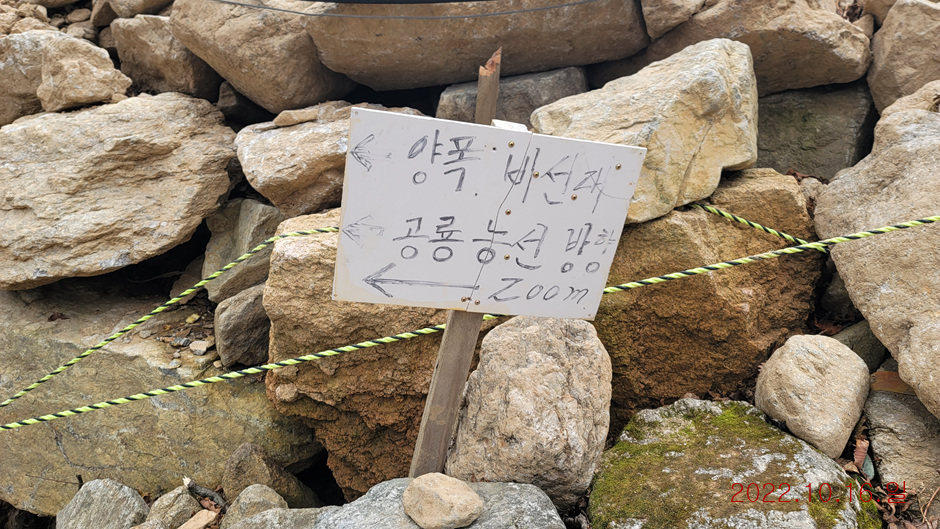 ← 양폭. 비선재
← 공룡 능선 방향
← 200m
2022.10.16 일